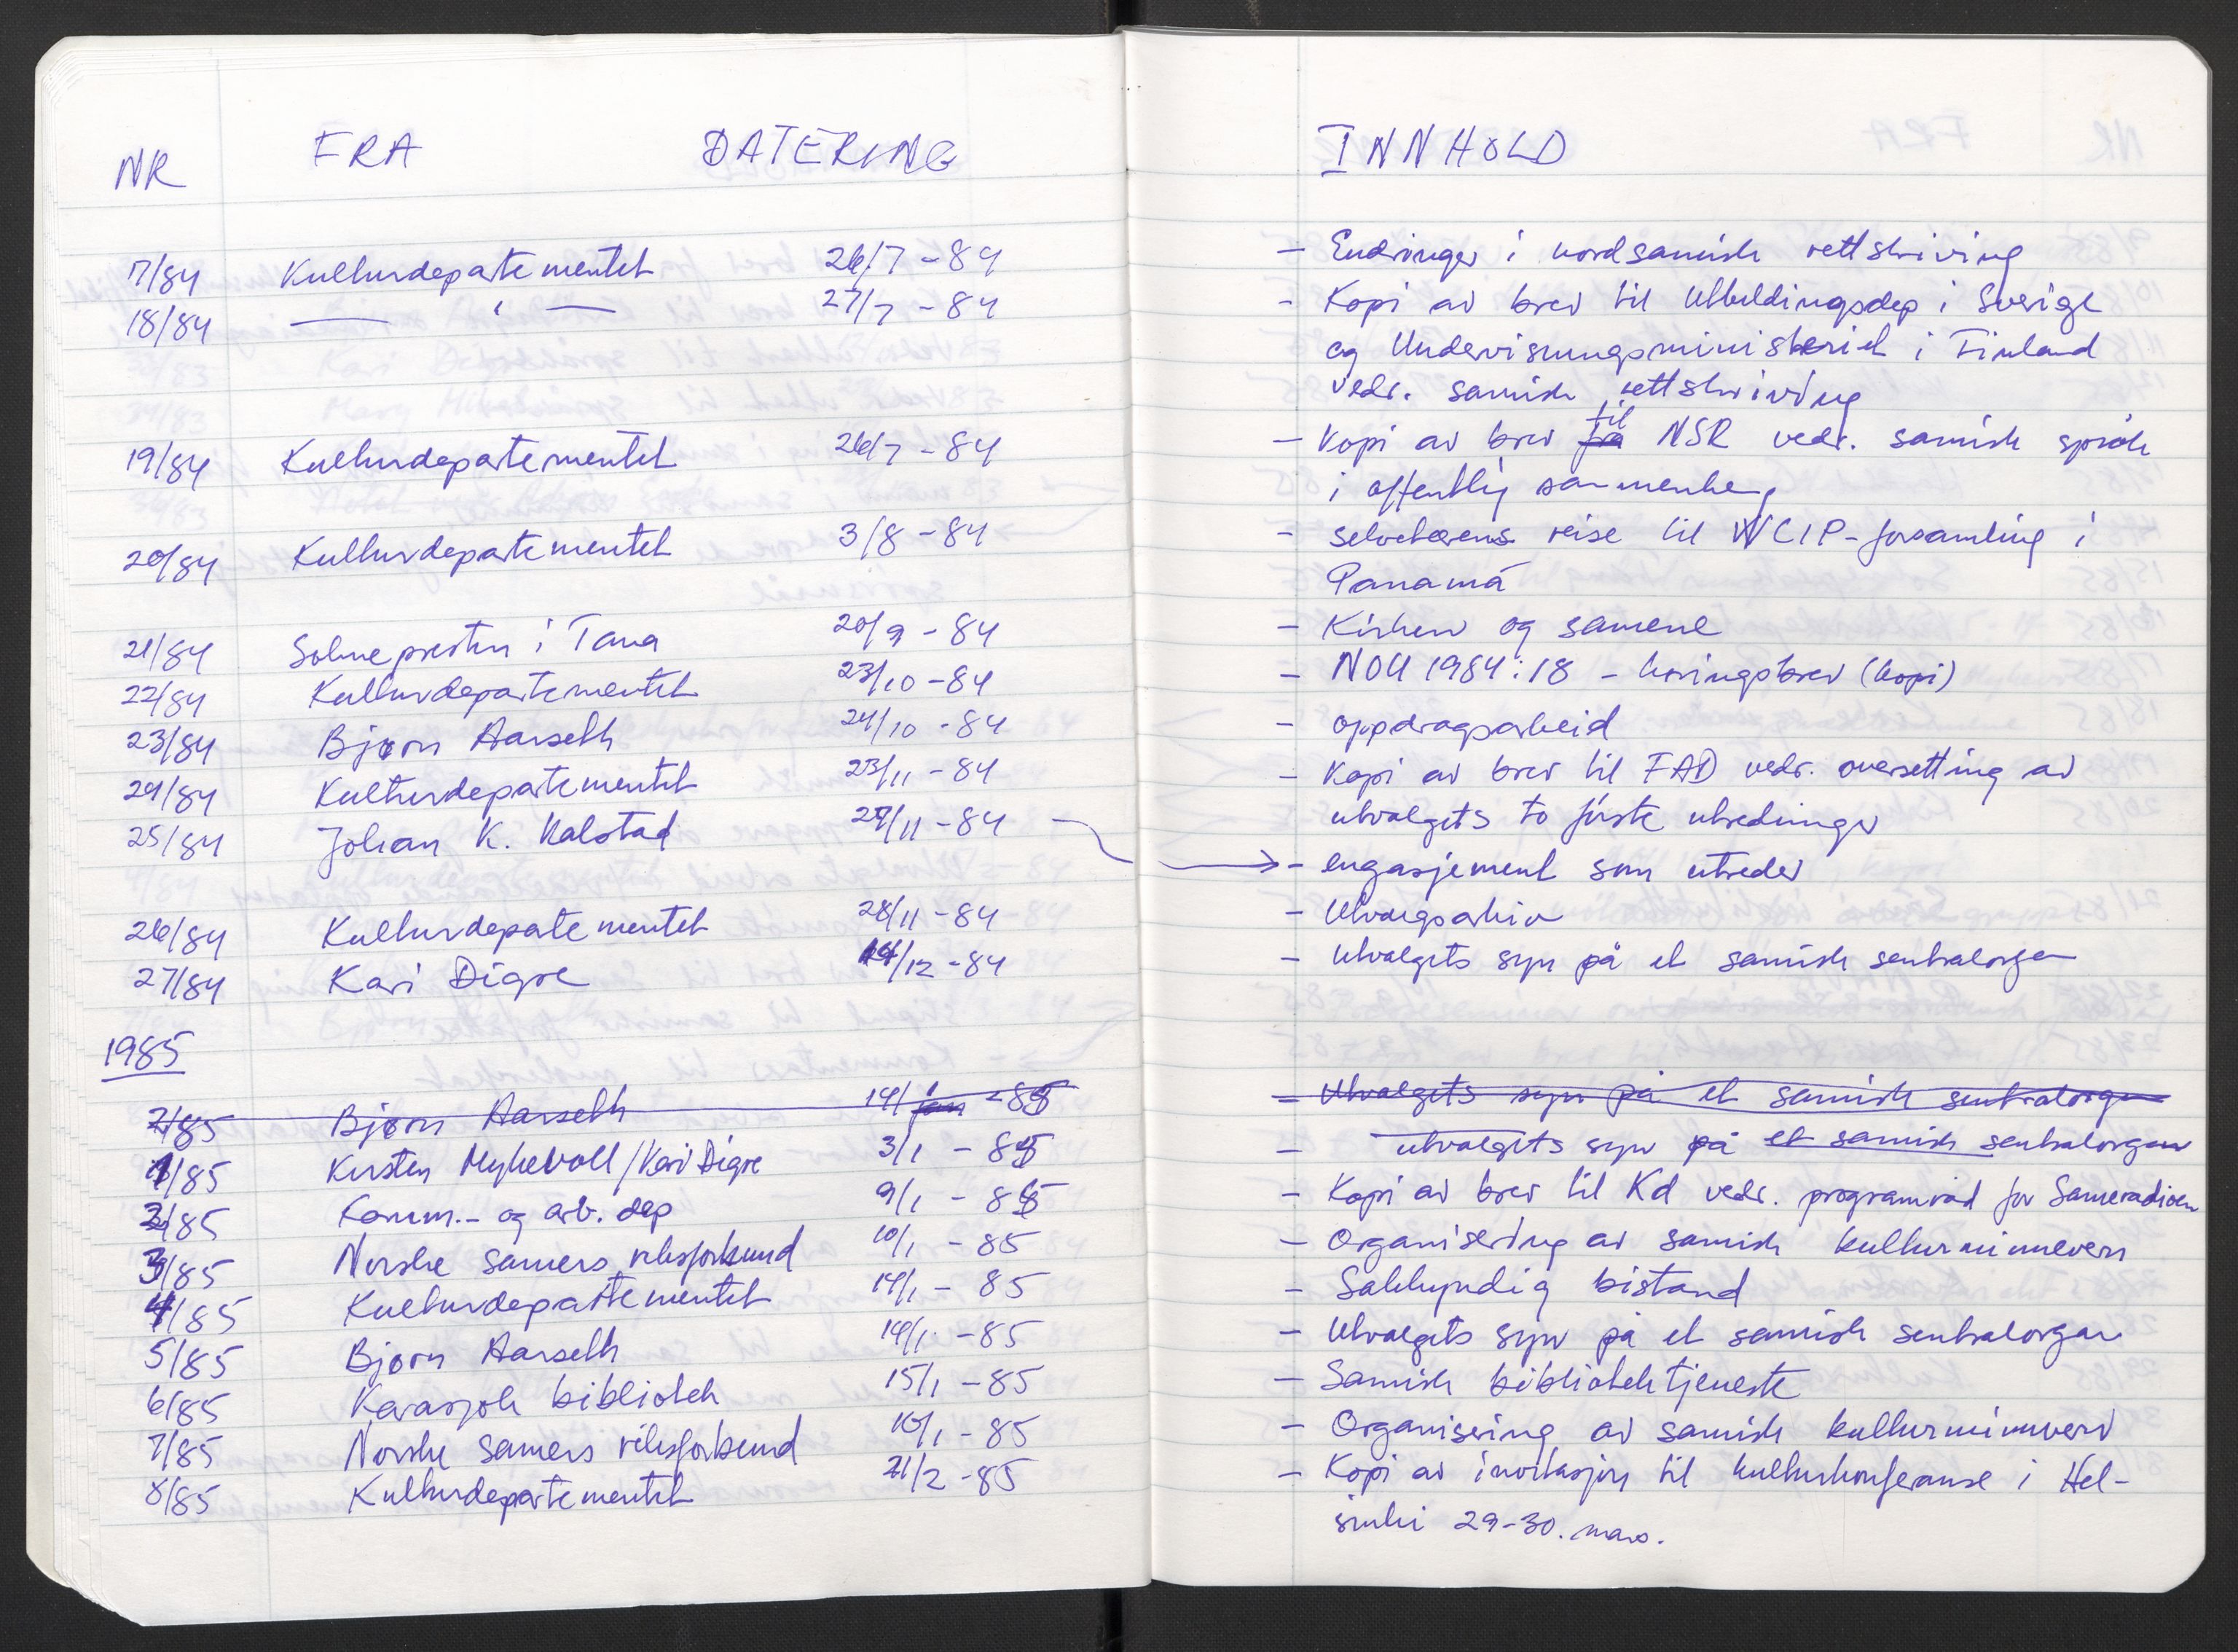 NR FRA DATERING
17/84 Kulturdepartementet 26/7 - 84
18/84 — " — 27/7 - 84
19/84 Kulturdepartementet 26/7 - 84
20/84 Kulturdepartementet 3/8 - 84
21/84 Soknepresten i Tana 20/9 - 84
22/84 Kulturdepartementet 23/10 - 84
23/84 Bjørn Aarseth 24/10 - 84
24/84 Kulturdepartementet 23/11 - 84
25/84 Johan K. Kalstad 27/11 - 84
26/84 Kulturdepartementet 28/11 - 84
27/84 Kari Digre 14/12 - 84
1985
2/85 Bjørn Aarseth 14/1 - 85
1/85 Kirsten Myklevoll/Kari Digre 3/1 - 85
2/85 Komm.- og arb. dep 9/1 - 85
3/85 Norske samers riksforbund 10/1 - 85
4/85 Kulturdepartementet 14/1 - 85
5/85 Bjørn Aarseth 14/1 - 85
6/85 Karasjok bibliotek 15/1 - 85
7/85 Norske samers riksforbund 16/1 - 85
8/85 Kulturdepartementet 21/2 - 85
INNHOLD
- Endringer i nordsamisk rettskriving
- Kopi av brev til Utbildingsdep i Sverige
og Undervisningsministeriet i Finland
vedr. samisk rettskriving
- Kopi av brev fra til NSR vedr. samisk språk
i offentlig sammenheng
- Selvehærens reise til WCIP-forsamling i
Panamá
- Kirken og samene
- NOU 1984:18 - høringsbrev (kopi)
- oppdragsarbeid
- Kopi av brev til FAD vedr. oversetting av
utvalgets to første utredninger
- engasjement som utreder
- Utvalgsarkiv
- Utvalgets syn på et samisk sentralorgan
- Utvalgets syn på et samisk sentralorgan
- utvalgets syn på et samisk sentralorgan
- Kopi av brev til Kd vedr. programråd for Sameradioen
- Organisering av samisk kulturminnevern
- Sakkyndig bistand
- Utvalgets syn på et samisk sentralorgan
- Samisk bibliotektjeneste
- Organisering av samisk kulturminnevern
- Kopi av invitasjon til kulturkonferanse i Hel-
sinki 29-30. mars.